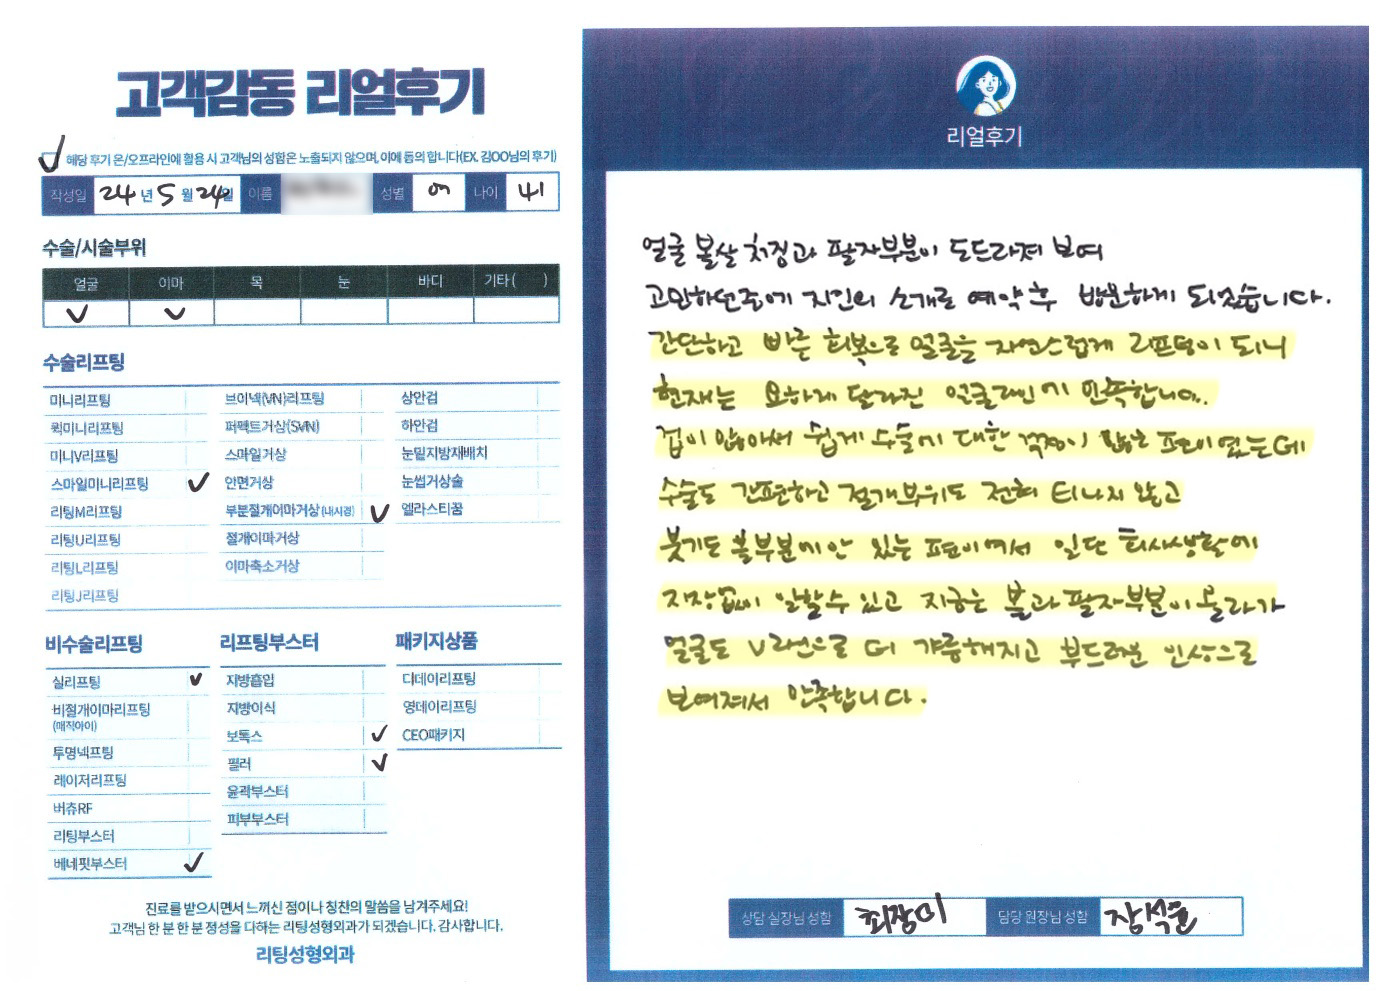 고객감동 리얼후기
해당 후기 온/오프라인에 활용 시 고객님의 성함은 노출되지 않으며, 이에 동의 합니다(EX. 김OO님의 후기)
작성일 24 년 5 월 24 일 이름 성별 여 나이 41
수술/시술부위
얼굴 이마 목 눈 바디 기타 ( )
수술리프팅
미니리프팅
퀵미니리프팅
미니V리프팅
스마일미니리프팅
리팅M리프팅
리팅U리프팅
리팅L리프팅
리팅J리프팅
브이넥(VN)리프팅
퍼펙트거상(SVN)
스마일거상
안면거상
부분절개이마거상 (내시경)
절개이마거상
이마축소거상
상안검
하안검
눈밑지방재배치
눈썹거상술
엘라스티꿈
비수술리프팅
실리프팅
비절개이마리프팅
(매직아이)
투명넥프팅
레이저리프팅
버츄RF
리팅부스터
베네핏부스터
리프팅부스터
지방흡입
지방이식
보톡스
필러
윤곽부스터
피부부스터
패키지상품
디데이리프팅
영데이리프팅
CEO패키지
진료를 받으시면서 느끼신 점이나 칭찬의 말씀을 남겨주세요!
고객님 한 분 한 분 정성을 다하는 리팅성형외과가 되겠습니다. 감사합니다.
리팅성형외과
리얼후기
얼굴 볼살 처짐과 팔자부분이 도드라져 보여
고민하던중에 지인의 소개로 예약 후 방문하게 되었습니다.
간단하고 빠른 회복으로 얼굴을 자연스럽게 리프팅이 되니
현재는 묘하게 달라진 얼굴라인에 만족합니다.
겁이 많아서 쉽게 수술에 대한 걱정이 많은 편이였는데
수술도 간편하고 절개부위도 전혀 티나지 않고
붓기도 볼부분에만 있는 편이여서 일단 회사생활에
지장없이 일할수 있고 지금은 볼과 팔자부분이 올라가
얼굴도 V라인으로 더 갸름해지고 부드러운 인상으로
보여져서 만족합니다.
상담 실장님 성함 최장미 담당 원장님 성함 장석윤